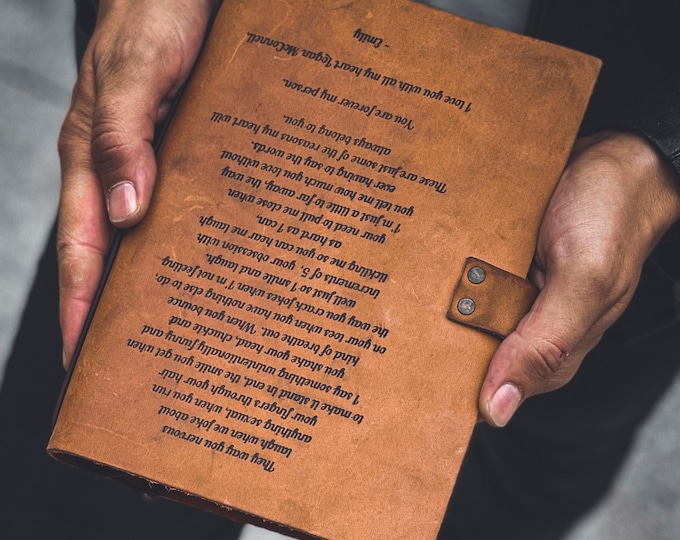 They way you nervous
laugh when we joke about
anything sexual, when you run
your fingers through your hair
to make it stand in end, the smile you get when
I say something unintentionally funny and
you shake your head, chuckle and
kind of breathe out. When you bounce
on your toes when you have nothing else to do,
the way you crack jokes when I'm not feeling
well just so I smile and laugh,
Increments of 5, your obsession with
tickling me so you can hear me laugh
as hard as I can,
your need to pull me close when
I'm just a little to far away, the way
you tell me how much you love without
ever having to say the words.
These are just some of the reasons my heart will
always belong to you.
You are forever my person.
I love you with all my heart Logan McConnell.
~ Emily